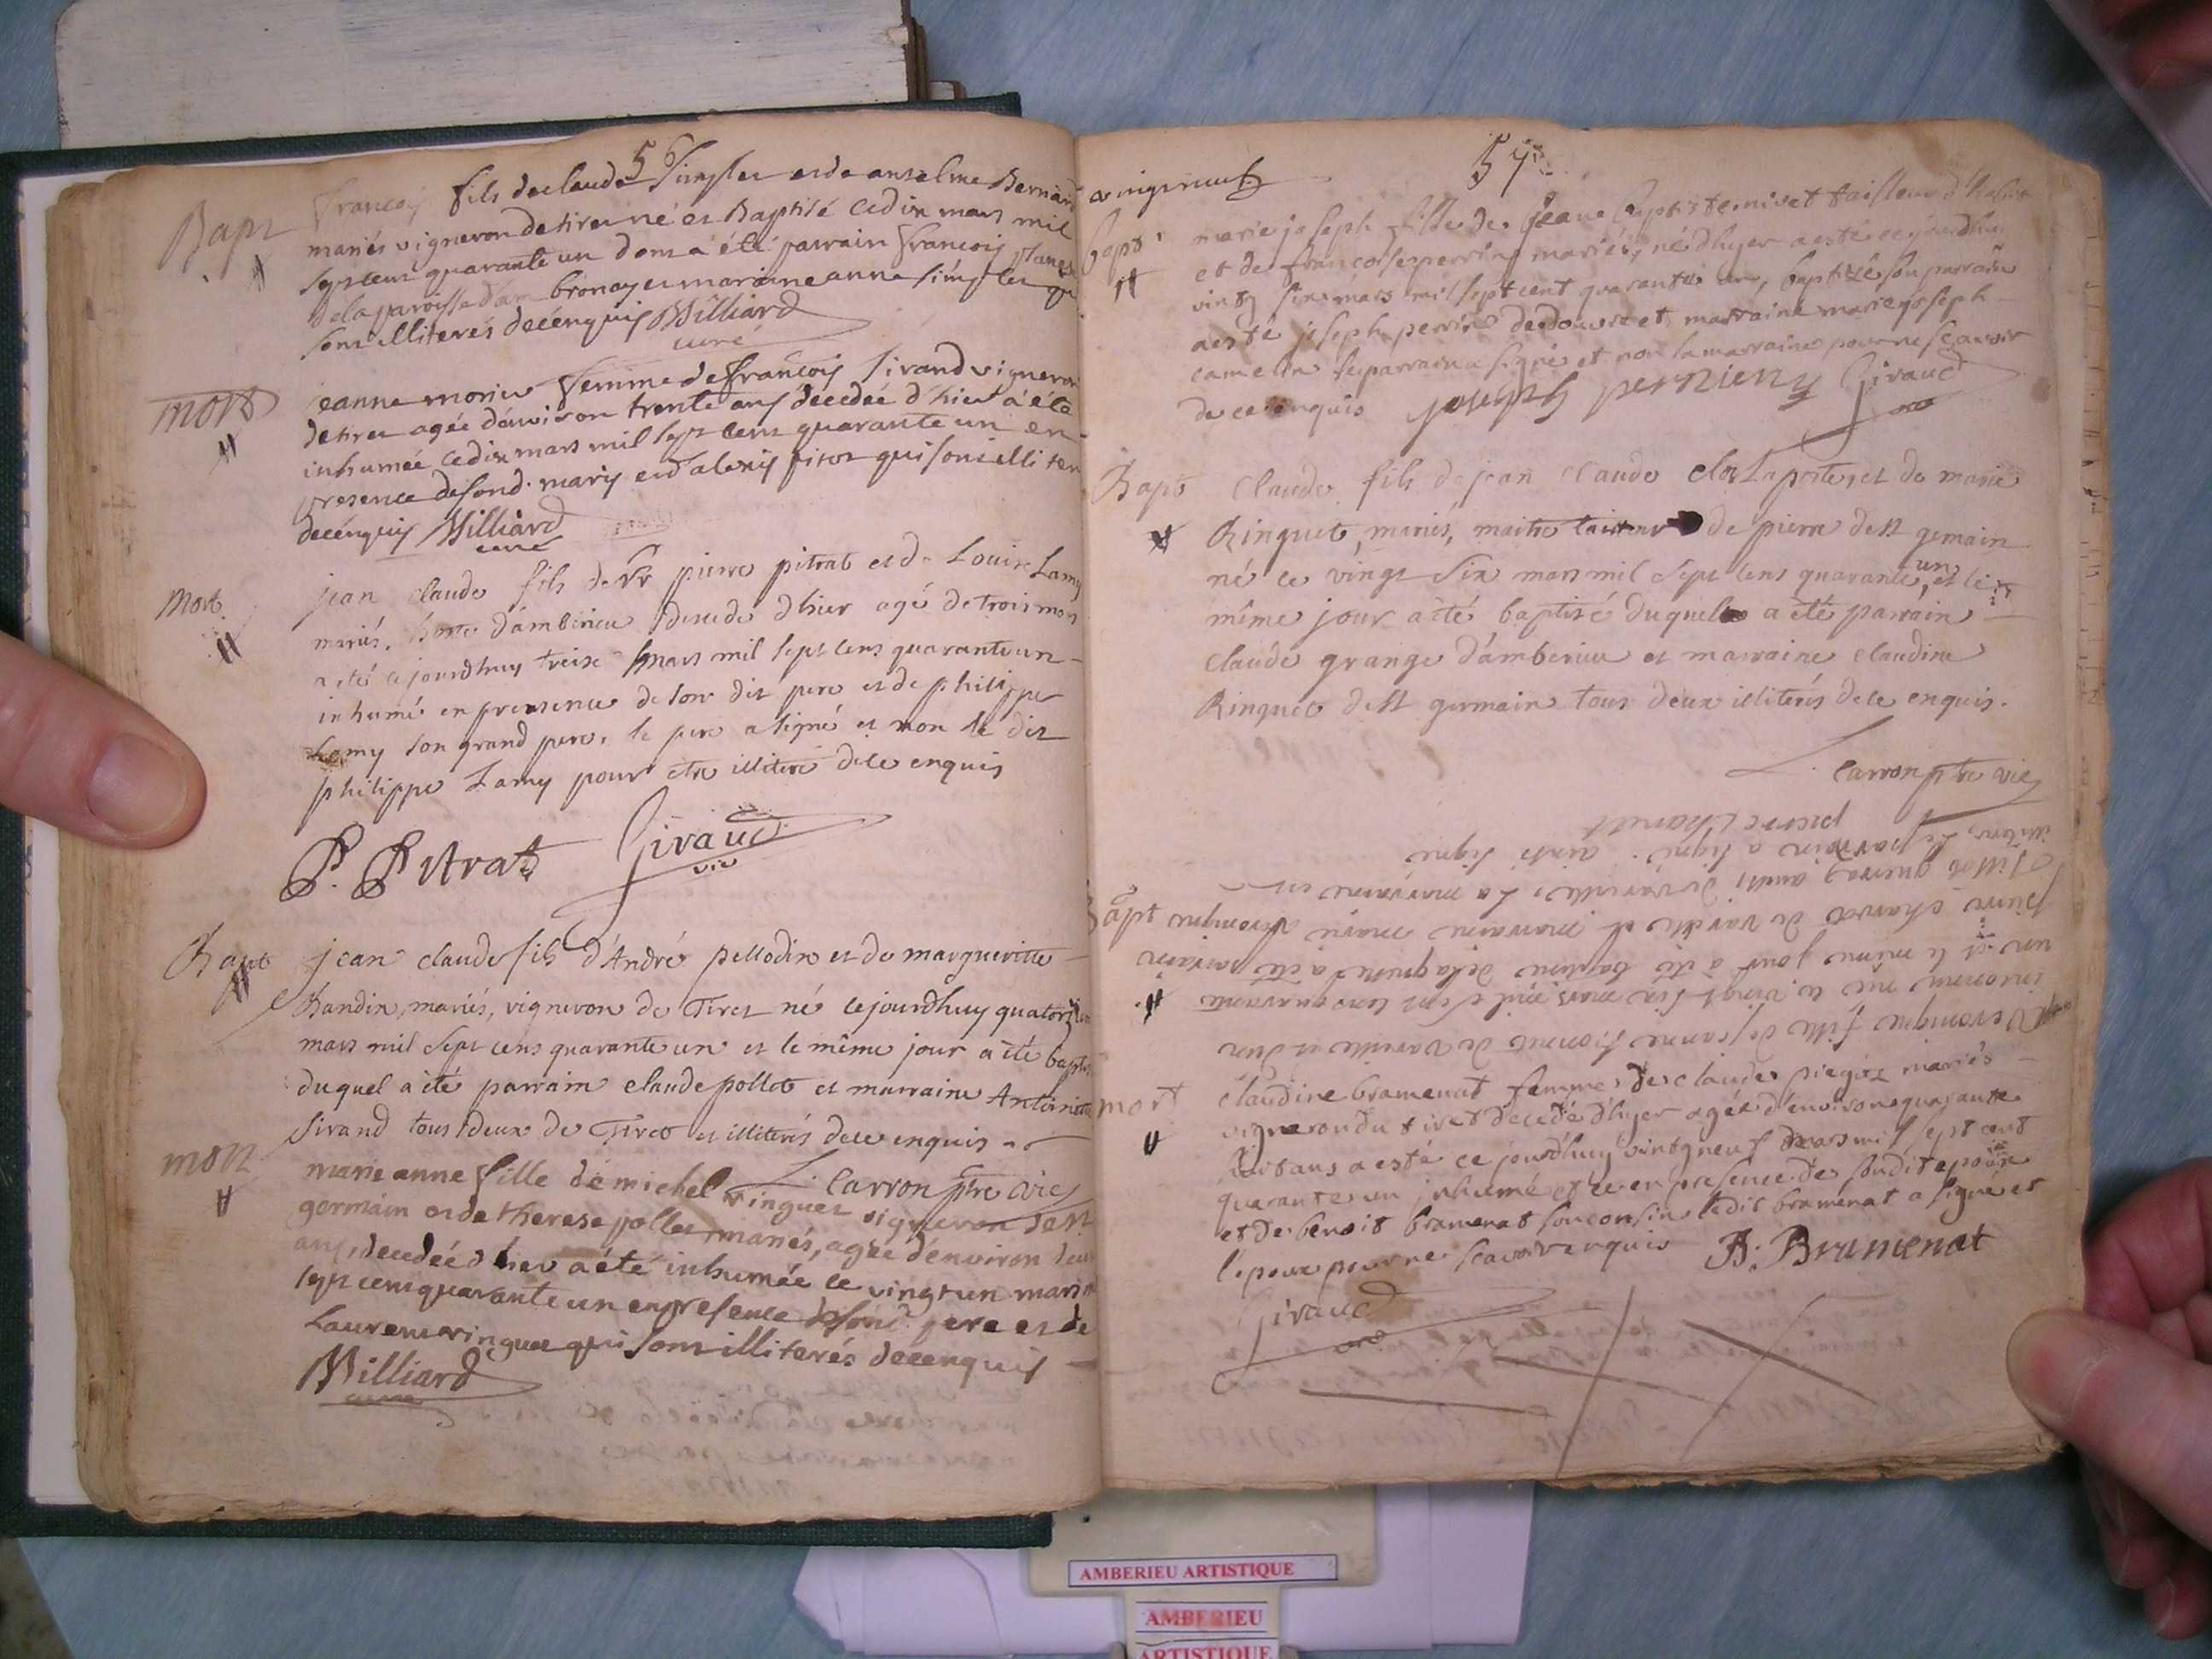 5
Bapt
francois fils de claude Simplex et de anselme Bernard
mariés vigneron de tiret né et Baptisé ce dix mars mil
sept cent quarante un dont a été parrain francois
de la paroisse d'ambronay et marraine anne simplex qui
sont illiterés de ce enquis Williard
curé
mort
jeanne monier femme de francois Sirand vigneron
de tiret agée d'environ trente ans décedée d'hier a été
inhumée ce dix mars mil sept cent quarante un en
presence de sond. mary et d'alexis pitot qui sont illiter
de ce enquis Williard
curé
Mort
jean claude fils de Sr pierre pitrat et de Louise Lamy
mariés, hoste d'ambérieu decedé d'hier agé de trois mois
a été ce jourdhuy treize mars mil sept cens quarante un
inhumé en presence de son dit pere et de philippe
Lamy son grand pere, le pere a signé et non le dit
philippe Lamy pour etre illiteré de ce enquis
P. Pitrat Giraud
vic
Bapt
jean claude fils d'André pellodin et de margueritte
Bandin, mariés, vigneron de Tiret né ce jourdhuy quatorze
mars mil sept cens quarante un et le même jour a été baptisé
duquel a été parrain claude pollet et marraine Antoinette
Sirand tous deux de Tiret et illiterés de ce enquis
L. Carron ptre vic
mort
marie anne fille de michel ringuet vigneron de St
germain et de therese pollet mariés, agée d'environ deux
ans, decedée d'hier a été inhumée ce vingt un mars mil
sept cent quarante un en presence de sond. pere et de
Laurent ringuet qui sont illiterés de ce enquis
Williard
curé
vingt neuf
57
bapt
marie joseph fille de jeane baptiste nivet tailleur d'habits
et de francoise perrin mariés, né d'hyer a esté ce jourdhuy
vintg six mars mil sept cent quarante un, baptizé son parrain
a esté joseph perrin de douvre et marraine marie joseph
camelin le parrain a signé et non la marraine pour ne sçavoir
de ce enquis joseph pernien Giraud
vic
Bapt
Claude fils de jean claude clot Laporte, et de marie
Ringuet, mariés, maitre de pierre de St germain
né ce vingt six mars mil sept cens quarante un, et le
même jour a été baptisé duquel a été parrain
claude grange d'amberieu et marraine claudine
Ringuet de St germain tous deux illiterés de ce enquis.
L. Carron ptre vic
Bapt
Veronique fille de jeanne froment de vareille et d'un
inconnu née ce vingt six mars mil sept cens quarante
un et le même jour a été baptisée de laquelle a été parrain
pierre charvet de vareille et marraine marie Veronique
aussi de vareille, La marraine est
illiterée, Le parrain a signé. ainsi signé
pierre Charvet
mort
claudine bramenat femme de claude mariés
vigneron du tiret decedé d'hyer agée d'environ quarante
huit ans a esté ce jourdhuy vintgneuf mars mil sept cent
quarante un inhumé et ce en presence de sondit epoux
et de benoit bramenat son cousin ledit bramenat a signé et
l'epoux pour ne scavoir enquis B: Bramenat
Giraud
vic
AMBERIEU ARTISTIQUE
AMBERIEU
ARTISTIQUE